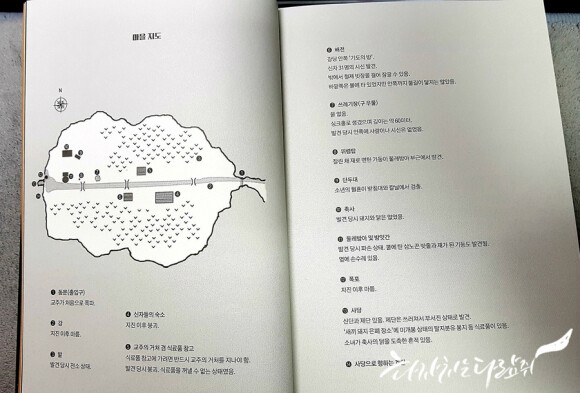 마을 지도
N
❶ 동문(출입구)
교주가 처음으로 폭파.
❷ 강
지진 이후 마름.
❸ 밭
발견 당시 전소 상태.
❹ 신자들의 숙소
지진 이후 붕괴.
❺ 교주의 거처 겸 식료품 창고
식료품 창고에 가려면 반드시 교주의 거처를 지나야 함.
발견 당시 붕괴. 식료품을 꺼낼 수 없는 상태였음.
❻ 배전
강당 안쪽 '기도의 방'.
신자 31명의 시신 발견.
밖에서 철제 빗장을 걸어 잠글 수 있음.
바깥쪽은 불에 타 있었지만 안쪽까지 불길이 닿지는 않았음.
❼ 쓰레기장(구 우물)
물 말음.
싱크홀로 생겼으며 깊이는 약 60미터.
발견 당시 안쪽에 사람이나 시신은 없었음.
❽ 위령탑
잘린 채 재로 변한 기둥이 물레방아 부근에서 발견.
❾ 단두대
소년의 혈흔이 받침대와 칼날에서 검출.
❿ 축사
발견 당시 돼지와 닭은 없었음.
⓫ 물레방아 및 방앗간
발견 당시 파손 상태. 불에 탄 삼노끈 밧줄과 재가 된 기둥도 발견됨.
옆에 손수레 있음.
⓬ 폭포
지진 이후 마름.
⓭ 사당
신단과 제단 있음. 제단은 쓰러져서 부서진 상태로 발견.
'새끼 돼지 은폐 장소'에 미개봉 상태의 탈지분유 봉지 등 식료품이 있음.
소녀가 축사의 닭을 도축한 흔적 있음.
⓮ 사당으로 향하는
책과지치는다람쥐